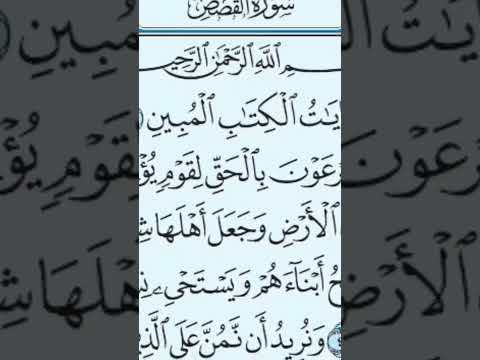 سُورَةُ القَصَصِ
ـمِ ٱللَّهِ ٱلرَّحْمَٰنِ ٱلرَّحِيـ
ـَايَٰتُ ٱلْكِتَٰبِ ٱلْمُبِينِ
ـرْعَوْنَ بِٱلْحَقِّ لِقَوْمٍ يُؤْ
ٱلْأَرْضِ وَجَعَلَ أَهْلَهَا شِـ
ـحُ أَبْنَآءَهُمْ وَيَسْتَحْىِۦ نِـ
وَنُرِيدُ أَن نَّمُنَّ عَلَى ٱلَّذِ